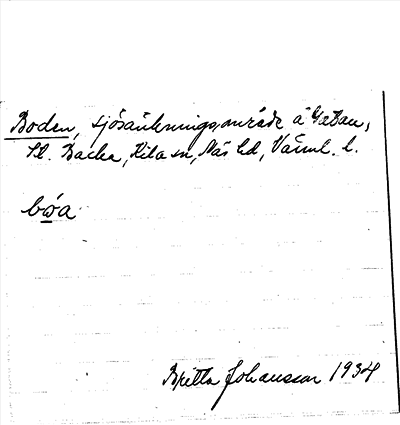 Boden, sjösänkningsområde å
St. Backa, Kila sn, Näs hd, Värml. l.
bωa
Britta Johansson 1934